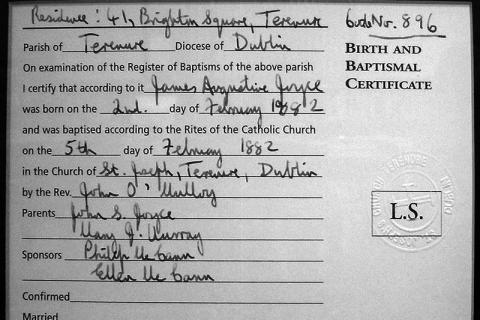 Residence: 41, Brighton Square, Terenure
Parish of Terenure Diocese of Dublin
On examination of the Register of Baptisms of the above parish
I certify that according to it James Augustine Joyce
was born on the 2nd. day of February 1882
and was baptised according to the Rites of the Catholic Church
on the 5th day of February 1882
in the Church of St. Joseph, Terenure, Dublin
by the Rev. John O'Mulloy
Parents John S. Joyce
Mary J. Murray
Sponsors Philip McCann
Ellen McCann
Confirmed
Married
No. 896
BIRTH AND
BAPTISMAL
CERTIFICATE
L.S.